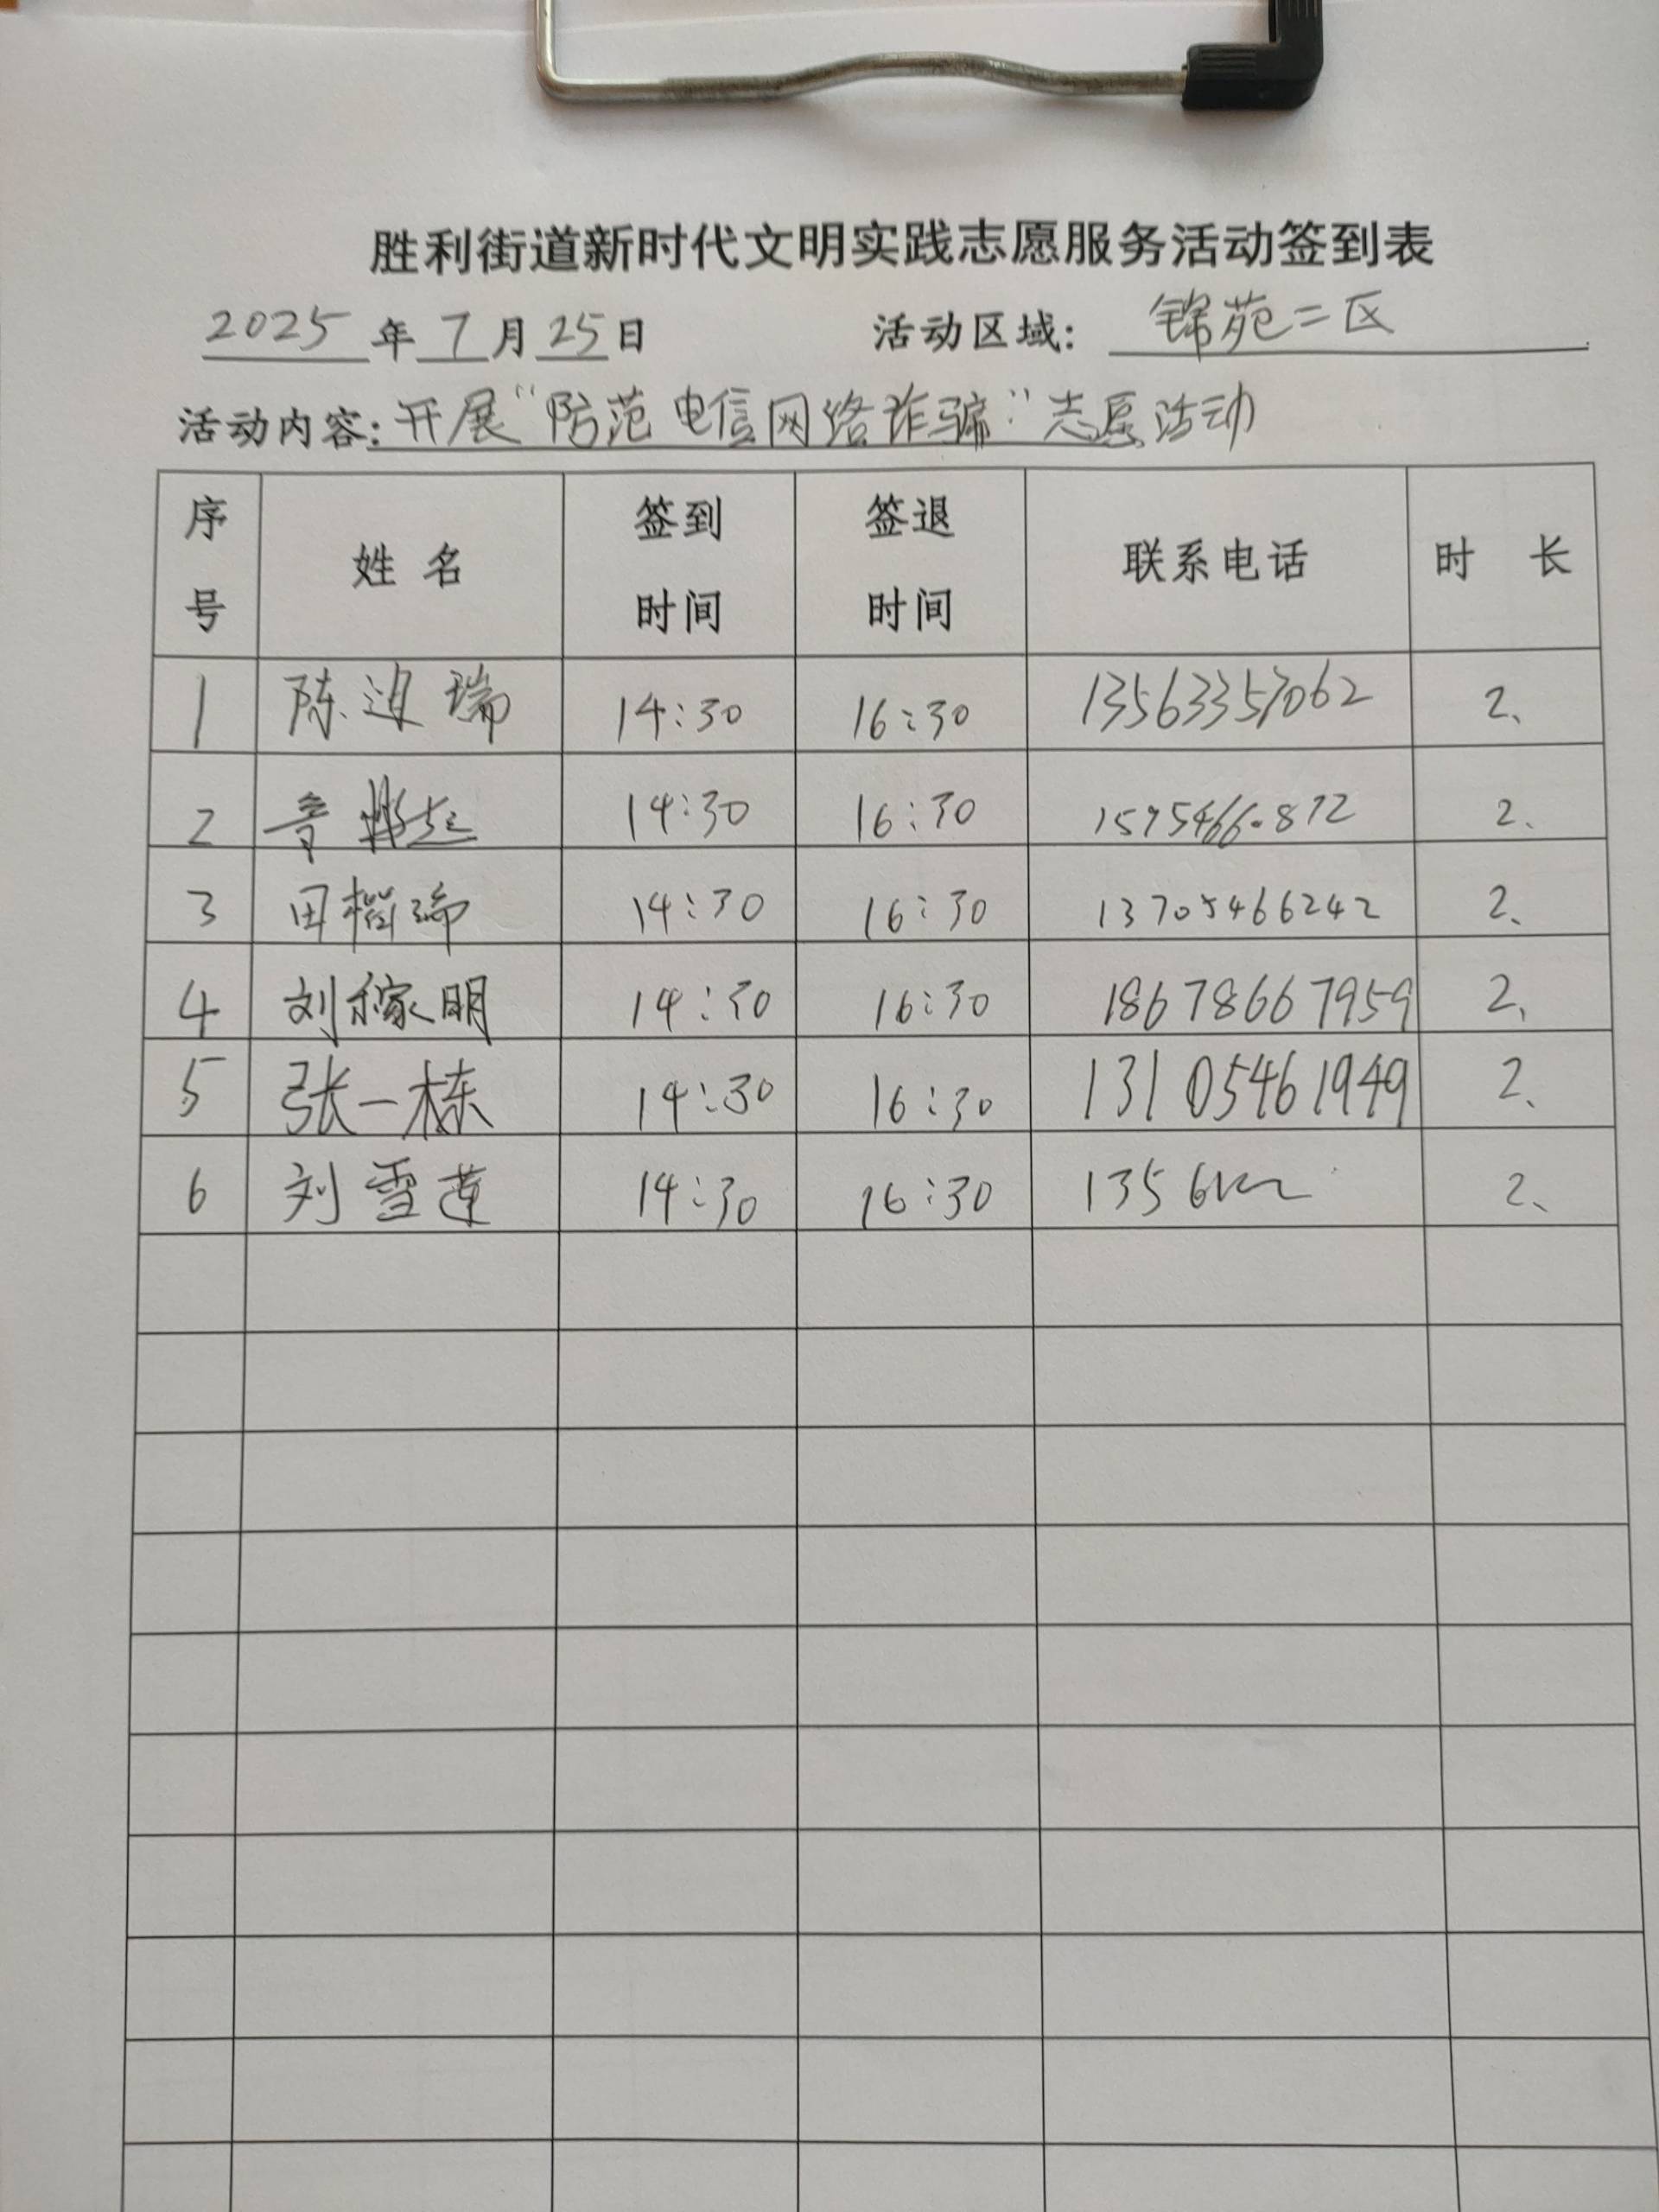 胜利街道新时代文明实践志愿服务活动签到表
2025年7月25日 活动区域: 锦苑二区
活动内容: 开展“防范电信网络诈骗”志愿活动
序号 姓名 签到时间 签退时间 联系电话 时长
1 陈 瑞 14:30 16:30 13563357062 2、
2 14:30 16:30 2、
3 田 瑞 14:30 16:30 13705466242 2、
4 刘稼明 14:30 16:30 18678667959 2、
5 张一栋 14:30 16:30 13105461949 2、
6 刘雪莲 14:30 16:30 1356 2、